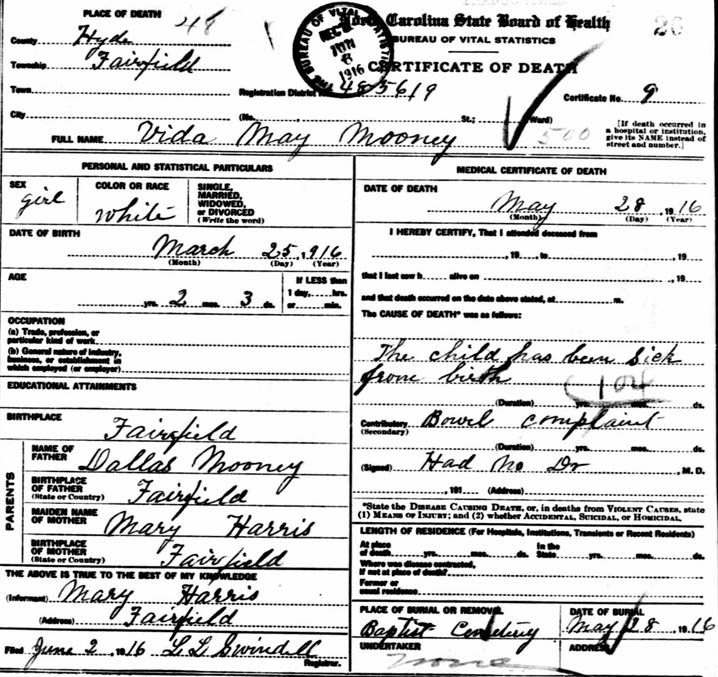 PLACE OF DEATH 48
North Carolina State Board of Health
26
BUREAU OF VITAL STATISTICS
THE BUREAU OF VITAL STATISTICS
1916
CERTIFICATE OF DEATH
County Hyde
Township Fairfield
Town
Registration District No. 485619
Certificate No. 9
City
(No. St.; Ward)
500
[If death occurred in a hospital or institution, give its NAME instead of street and number.]
FULL NAME Vida May Mooney
PERSONAL AND STATISTICAL PARTICULARS
SEX
girl
COLOR OR RACE
white
SINGLE, MARRIED, WIDOWED, or DIVORCED
(Write the word)
DATE OF BIRTH
March 25, 1916
(Month) (Day) (Year)
AGE
yrs. 2 mos. 3 ds.
If LESS than 1 day, hrs. or min.
OCCUPATION
(a) Trade, profession, or particular kind of work
(b) General nature of industry, business, or establishment in which employed (or employer)
EDUCATIONAL ATTAINMENTS
BIRTHPLACE
Fairfield
PARENTS
NAME OF FATHER
Dallas Mooney
BIRTHPLACE OF FATHER
(State or Country)
Fairfield
MAIDEN NAME OF MOTHER
Mary Harris
BIRTHPLACE OF MOTHER
(State or Country)
Fairfield
THE ABOVE IS TRUE TO THE BEST OF MY KNOWLEDGE
(Informant) Mary Harris
(Address) Fairfield
Filed June 2, 1916 L L Swindell
Registrar.
MEDICAL CERTIFICATE OF DEATH
DATE OF DEATH
May 28, 1916
(Month) (Day) (Year)
I HEREBY CERTIFY, That I attended deceased from
, 19 , to , 19
that I last saw h alive on , 19
and that death occurred on the date above stated, at m.
The CAUSE OF DEATH* was as follows:
The child has been sick
from birth
104
(Duration) yrs. mos. ds.
Contributory Bowel complaint
(Secondary)
(Duration) yrs. mos. ds.
(Signed) Had no Dr M. D.
, 191 (Address)
*State the DISEASE CAUSING DEATH, or, in deaths from VIOLENT CAUSES, state
(1) MEANS OF INJURY; and (2) whether ACCIDENTAL, SUICIDAL, OR HOMICIDAL.
LENGTH OF RESIDENCE (For Hospitals, Institutions, Transients or Recent Residents)
At place of death yrs. mos. ds. In the State yrs. mos. ds.
Where was disease contracted, if not at place of death?
Former or usual residence
PLACE OF BURIAL OR REMOVAL
Baptist Cemetery
DATE OF BURIAL
May 28, 1916
UNDERTAKER
none
ADDRESS